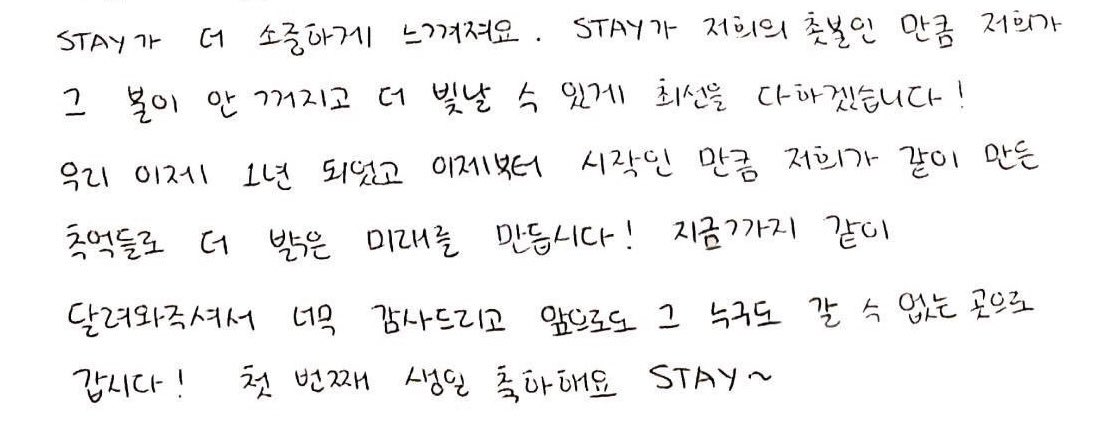 STAY가 더 소중하게 느껴져요. STAY가 저희의 촛불인 만큼 저희가
그 불이 안 꺼지고 더 빛날 수 있게 최선을 다하겠습니다!
우리 이제 1년 되었고 이제부터 시작인 만큼 저희가 같이 만든
추억들로 더 밝은 미래를 만듭시다! 지금까지 같이
달려와주셔서 너무 감사드리고 앞으로도 그 누구도 갈 수 없는 곳으로
갑시다! 첫 번째 생일 축하해요 STAY~